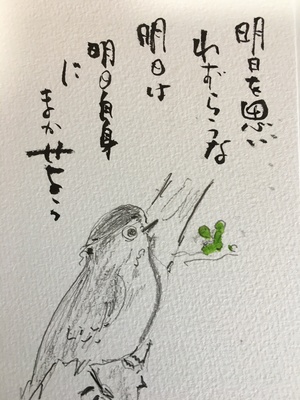 明日を思い
わずらうな
明日は
明日自身
に
まかせよう